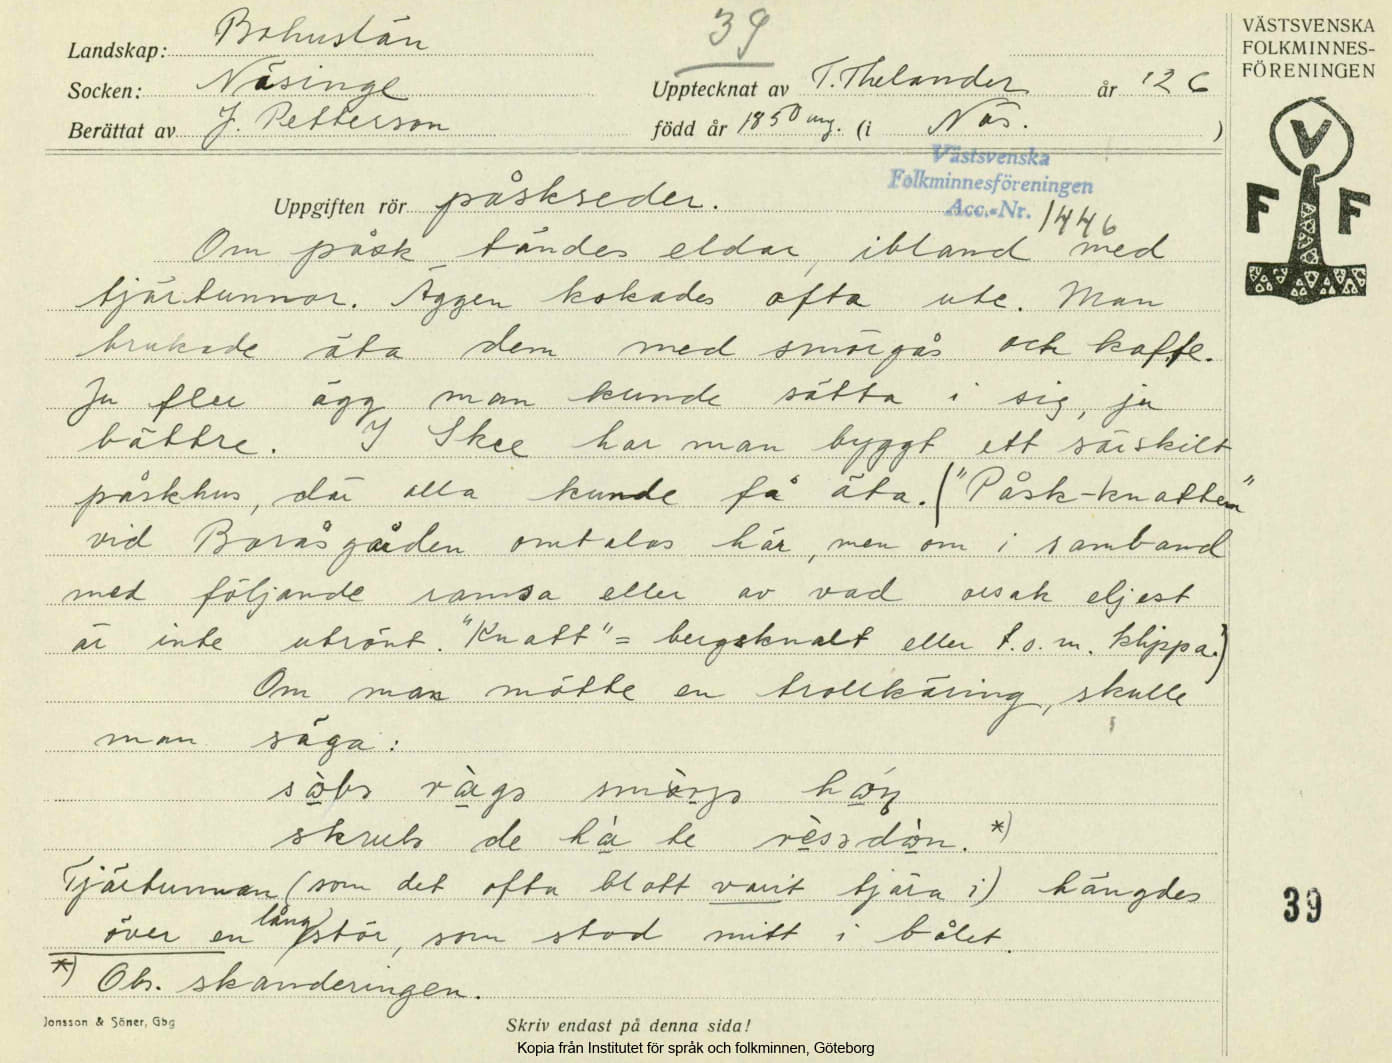 Landskap: Bohuslän
39
Socken: Näsinge
Upptecknat av T. Thelander år 1926
Berättat av J. Petterson
född år 1850 ung. (i Näs. )
VÄSTSVENSKA
FOLKMINNES-
FÖRENINGEN
V
F F
Västsvenska
Folkminnesföreningen
Acc.-Nr. 1446
Uppgiften rör påskseder.
Om påsk tändes eldar, ibland med
tjärtunnor. Äggen kokades ofta ute. Man
brukade äta dem med smörgås och kaffe.
Ju fler ägg man kunde sätta i sig, ju
bättre. I Skee har man byggt ett särskilt
påskhus, där alla kunde få äta. ("Påsk-knatten"
vid Boråsgården omtalas här, men om i samband
med följande ramsa eller av vad orsak eljest
är inte utrönt. "Knatt" = bergsknalt eller t.o.m. klippa.)
Om man mötte en trollkäring, skulle
man säga:
skrubs de hà te
Tjärtunnan (som det ofta blott varit tjära i) hängdes
över en lång stör, som stod mitt i bålet.
*) Obs. skanderingen.
39
Jonsson & Söner, Gbg
Skriv endast på denna sida!
Kopia från Institutet för språk och folkminnen, Göteborg